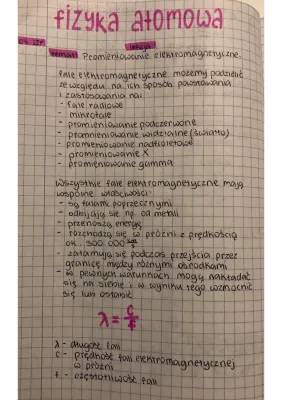 fizyka atomowa
lekcja
temat: Promieniowanie elektromagnetyczne.
Fale elektromagnetyczne możemy podzielić
ze względu na ich sposób powstawania
i zastosowania na:
- fale radiowe
- mikrofale
- promieniowanie podczerwone
- promieniowanie widzialne (światło)
- promieniowanie nadfioletowe
- promieniowanie X
- promieniowanie gamma
Wszystkie fale elektromagnetyczne mają
wspólne właściwości:
- są falami poprzecznymi
- odbijają się np. od metali
- przenoszą energię
- rozchodzą się w próżni z prędkością
ok. 300 000 km/s
- załamują się podczas przejścia przez
granicę między różnymi ośrodkami
- w pewnych warunkach mogą nakładać
się na siebie i w wyniku tego wzmocnić
się lub osłabić
λ = c/f
λ - długość fali
c - prędkość fali elektromagnetycznej
w próżni
f - częstotliwość fali